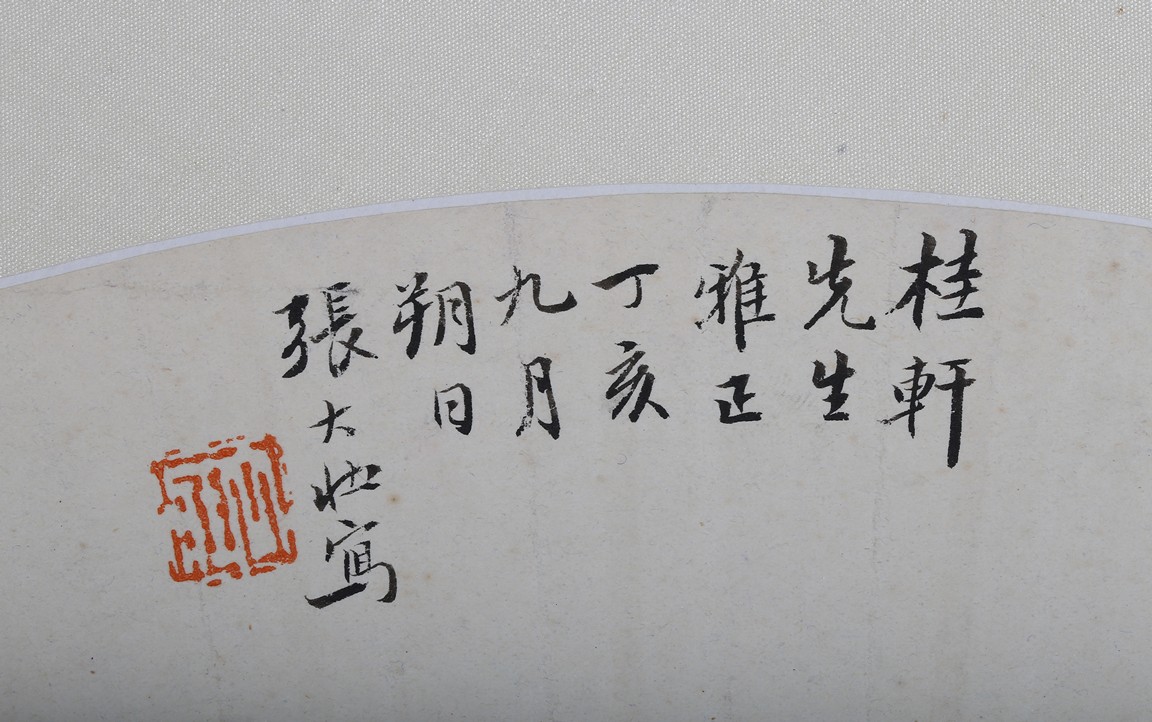 桂軒
先生
雅正
丁亥
九月
朔日
張大壯寫